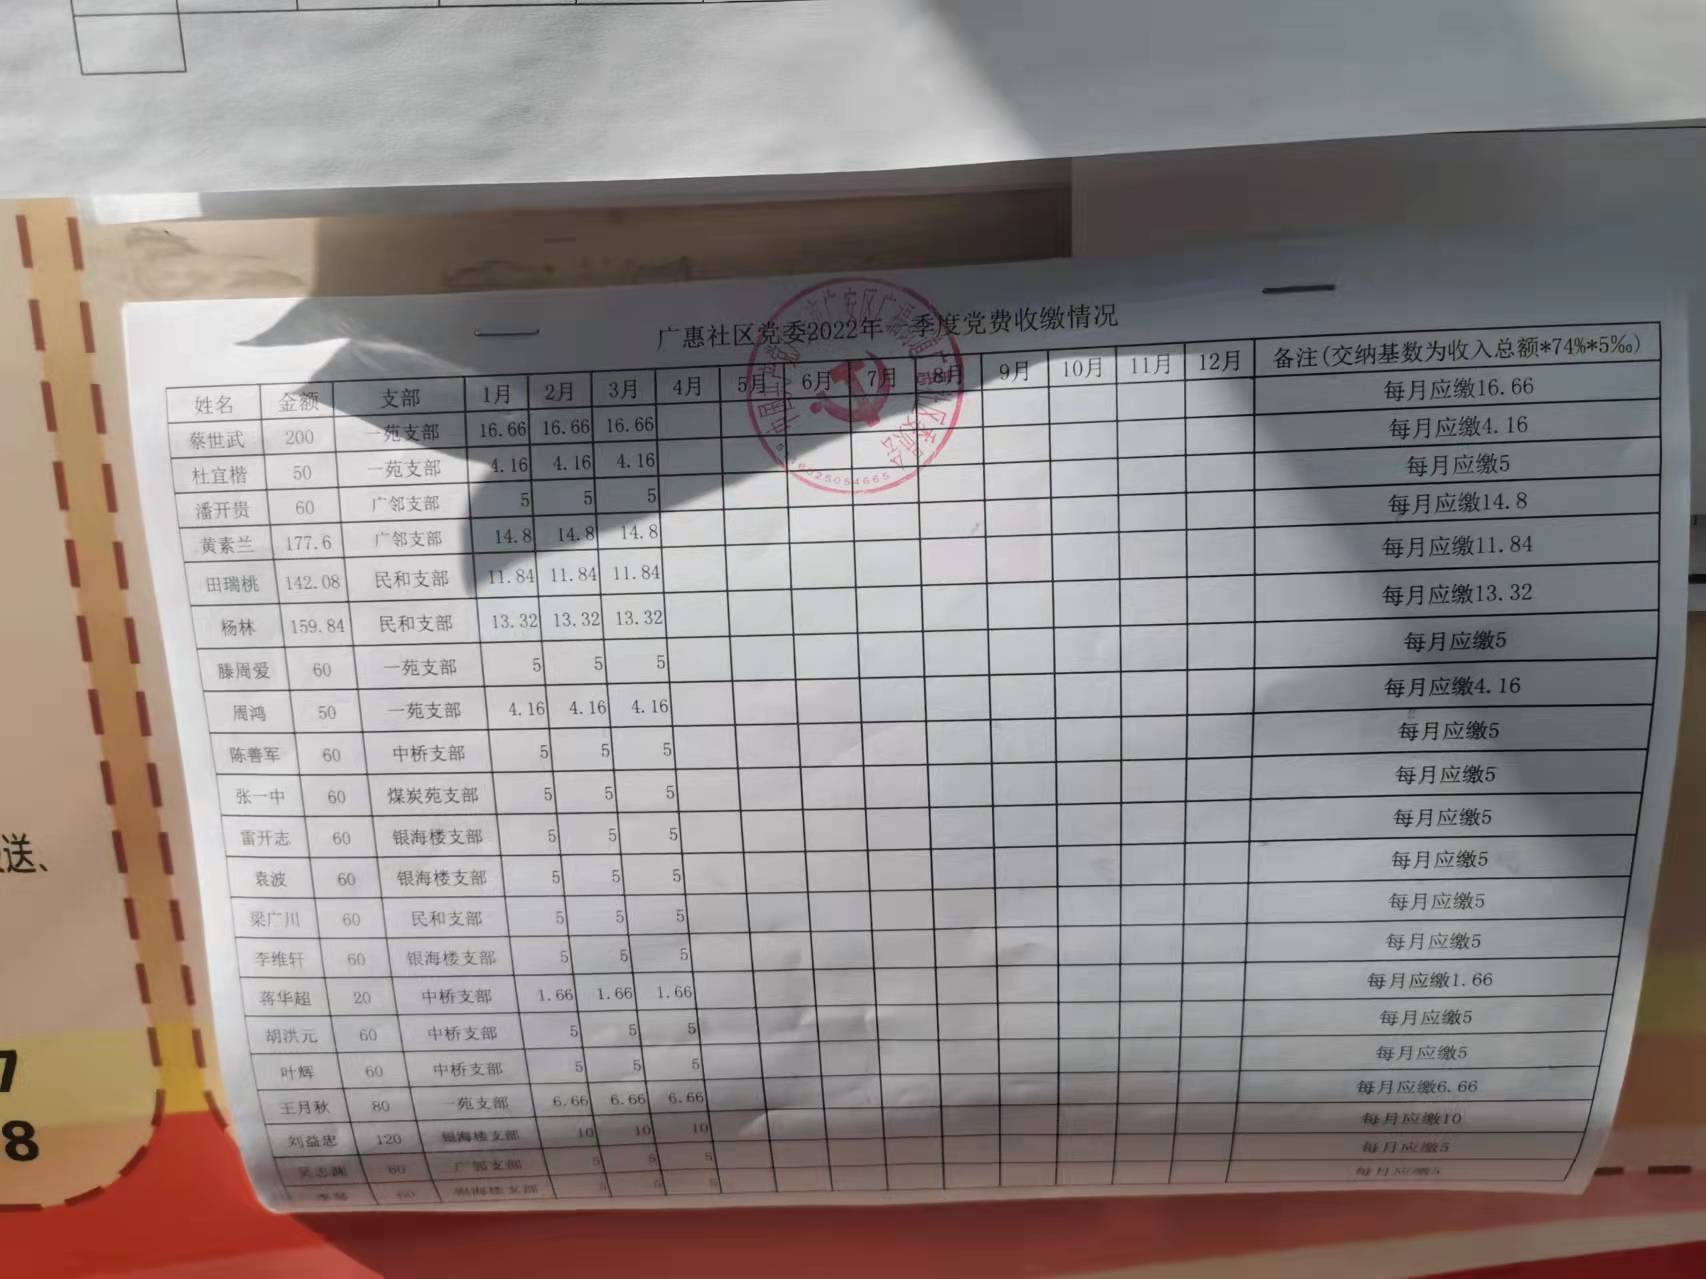 广惠社区党委2022年一季度党费收缴情况
姓名 金额 支部 1月 2月 3月 4月 5月 6月 7月 8月 9月 10月 11月 12月 备注(交纳基数为收入总额*74%*5‰)
蔡世武 200 一苑支部 16.66 16.66 16.66 每月应缴16.66
杜宜楷 50 一苑支部 4.16 4.16 4.16 每月应缴4.16
潘开贵 60 广邻支部 5 5 5 每月应缴5
黄素兰 177.6 广邻支部 14.8 14.8 14.8 每月应缴14.8
田瑞桃 142.08 民和支部 11.84 11.84 11.84 每月应缴11.84
杨林 159.84 民和支部 13.32 13.32 13.32 每月应缴13.32
滕周爱 60 一苑支部 5 5 5 每月应缴5
周鸿 50 一苑支部 4.16 4.16 4.16 每月应缴4.16
陈善军 60 中桥支部 5 5 5 每月应缴5
张一中 60 煤炭苑支部 5 5 5 每月应缴5
雷开志 60 银海楼支部 5 5 5 每月应缴5
袁波 60 银海楼支部 5 5 5 每月应缴5
梁广川 60 民和支部 5 5 5 每月应缴5
李维轩 60 银海楼支部 5 5 5 每月应缴5
蒋华超 20 中桥支部 1.66 1.66 1.66 每月应缴1.66
胡洪元 60 中桥支部 5 5 5 每月应缴5
叶辉 60 中桥支部 5 5 5 每月应缴5
王月秋 80 一苑支部 6.66 6.66 6.66 每月应缴6.66
刘益忠 120 银海楼支部 10 10 10 每月应缴10
60 广邻支部 5 5 5 每月应缴5
60 银海楼支部 5 5 5 每月应缴5
送、
7
8